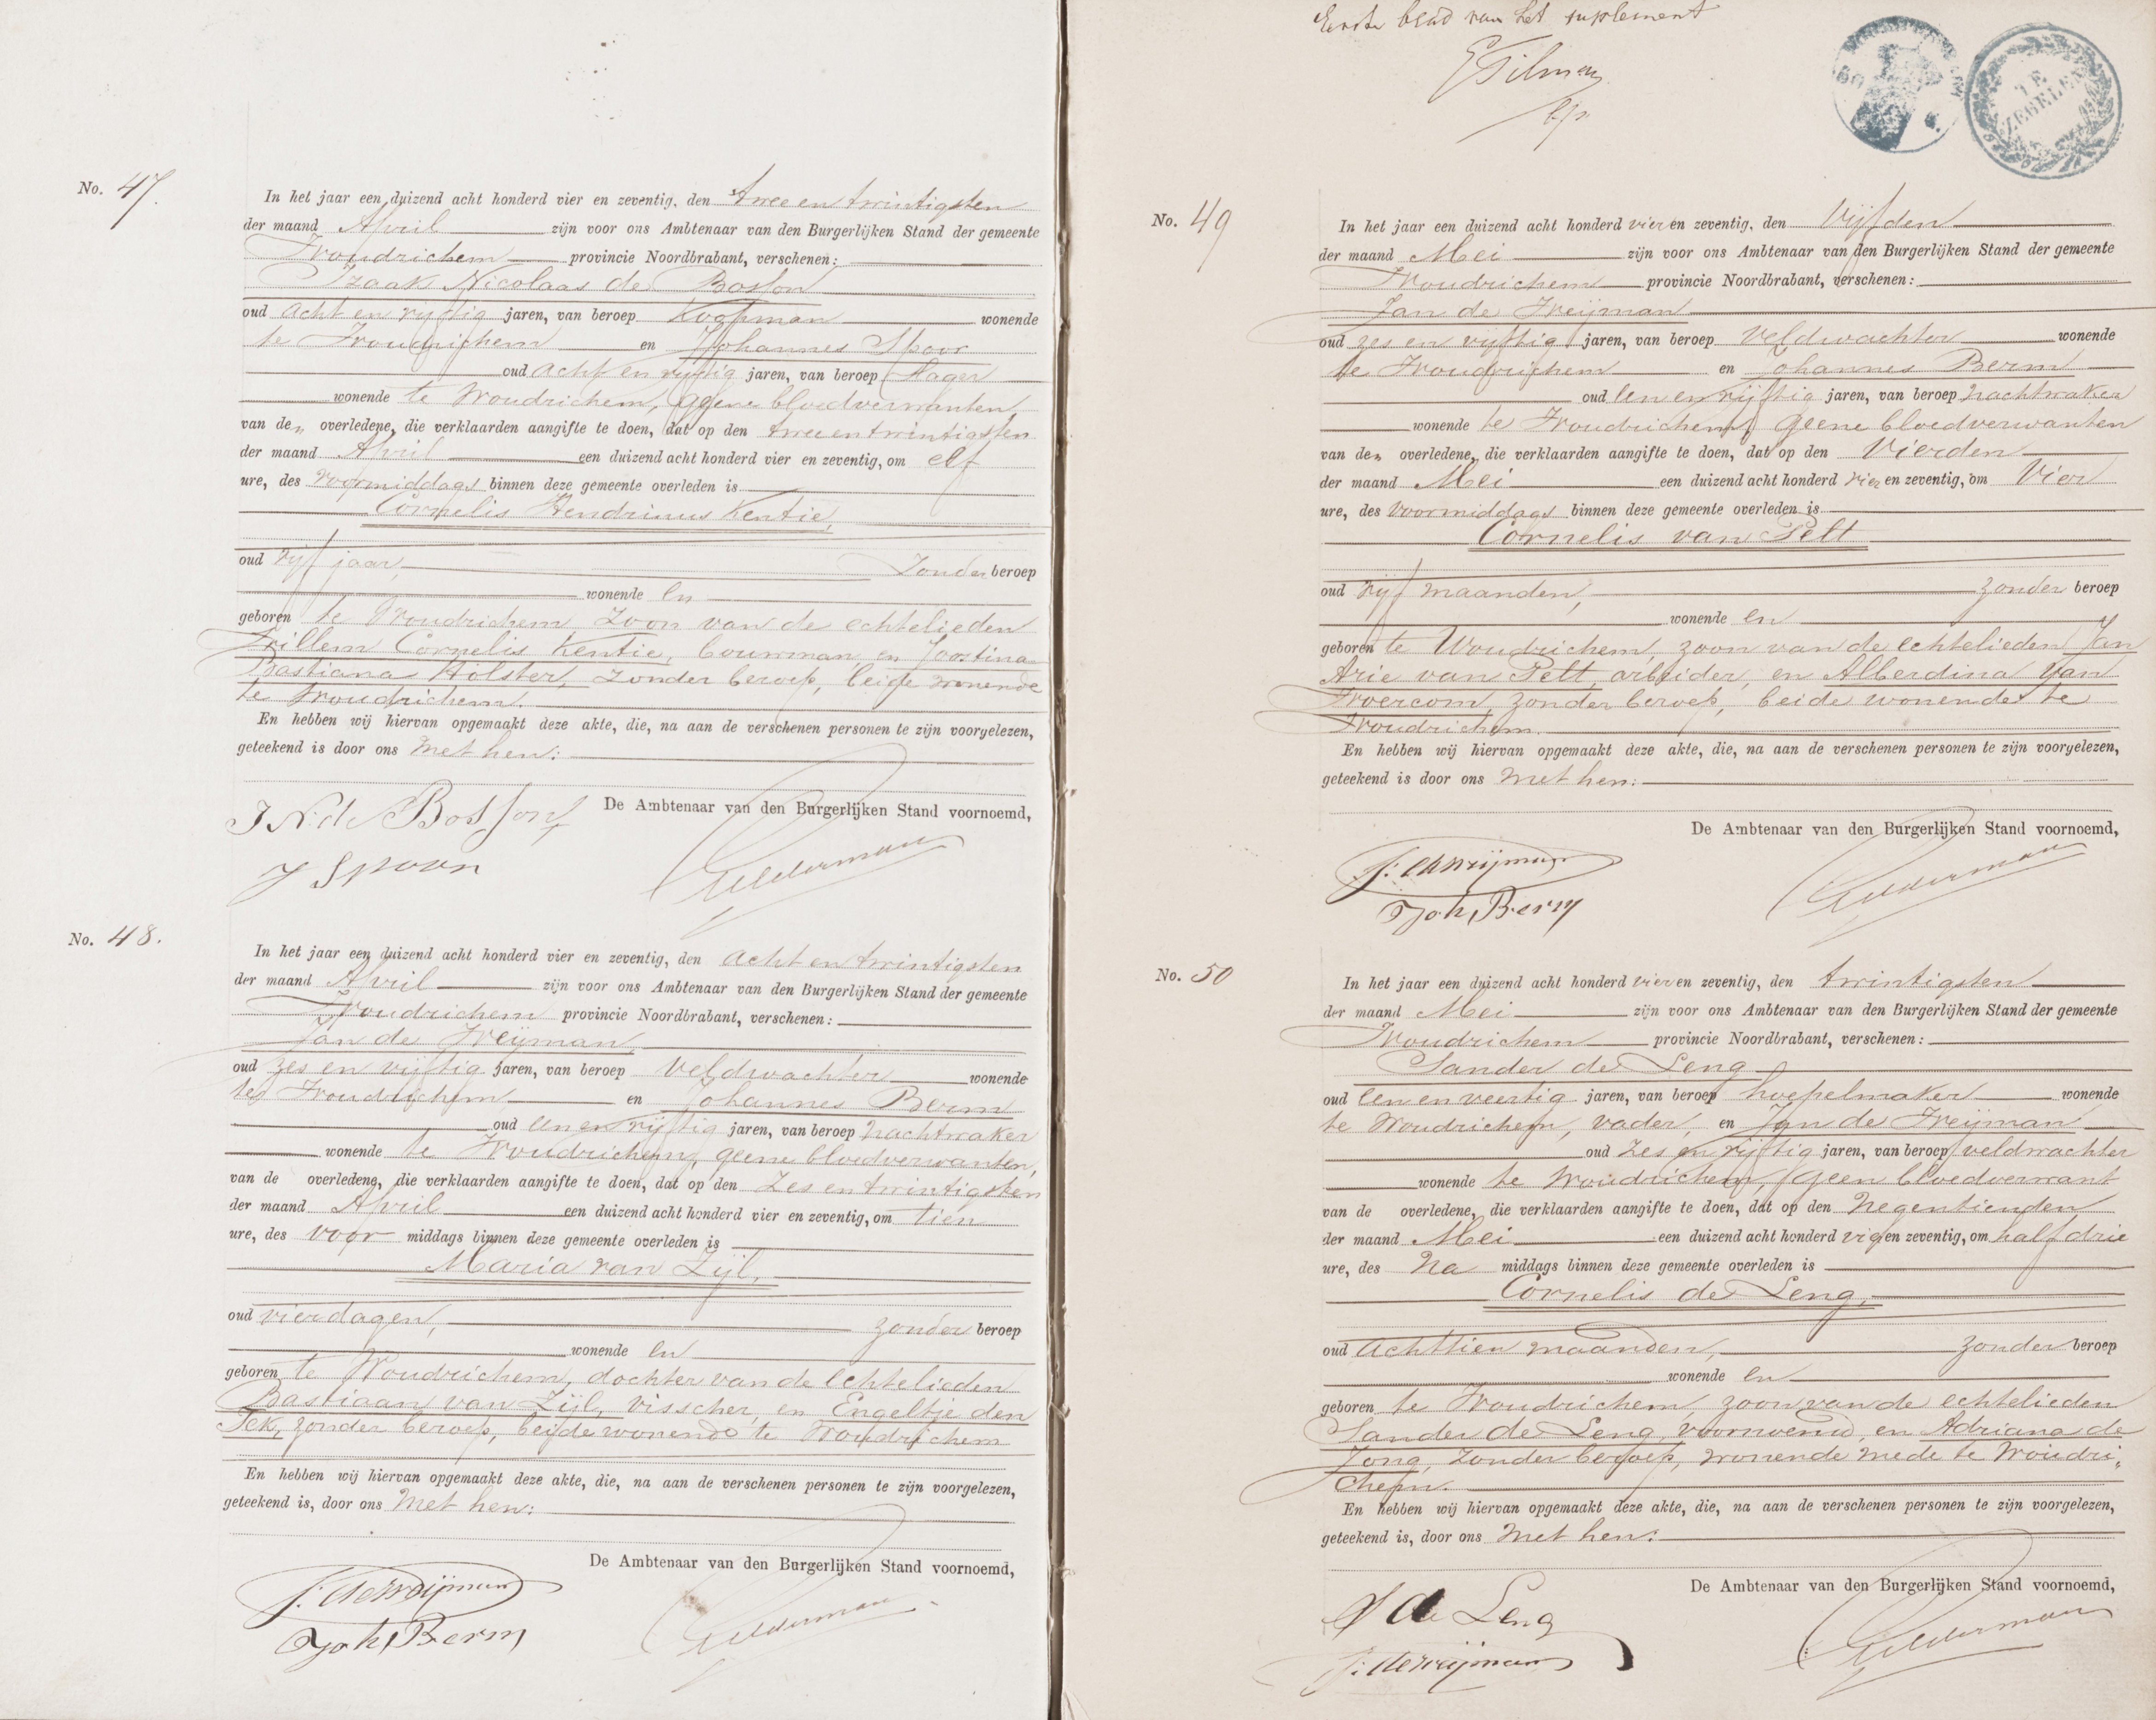 No. 47.
In het jaar een duizend acht honderd vier en zeventig, den twee en twintigsten
der maand April zijn voor ons Ambtenaar van den Burgerlijken Stand der gemeente
Woudrichem provincie Noordbrabant, verschenen:
Izaak Nicolaas de Bosson
oud acht en vijftig jaren, van beroep Koopman wonende
te Woudrichem en Johannes Spoor
oud acht en vijftig jaren, van beroep Slager
wonende te Woudrichem, geene bloedverwanten,
van den overledene, die verklaarden aangifte te doen, dat op den twee en twintigsten
der maand April een duizend acht honderd vier en zeventig, om elf
ure, des voormiddags binnen deze gemeente overleden is
Cornelis Hendrinus Kentie,
oud vijf jaar, Zonder beroep
wonende en
geboren te Woudrichem, Zoon van de echtelieden
Willem Cornelis Kentie, bouwman en Joostina
Bastiana Holster, Zonder beroep, beide wonende
te Woudrichem.
En hebben wij hiervan opgemaakt deze akte, die, na aan de verschenen personen te zijn voorgelezen,
geteekend is door ons met hen:
De Ambtenaar van den Burgerlijken Stand voornoemd,
J N. de Bosson
J Spoor
Gelderman
No. 48.
In het jaar een duizend acht honderd vier en zeventig, den acht en twintigsten
der maand April zijn voor ons Ambtenaar van den Burgerlijken Stand der gemeente
Woudrichem provincie Noordbrabant, verschenen:
Jan de Weijman
oud zes en vijftig jaren, van beroep veldwachter wonende
te Woudrichem en Johannes Berm
oud een en vijftig jaren, van beroep nachtwaker
wonende te Woudrichem, geene bloedverwanten,
van de overledene, die verklaarden aangifte te doen, dat op den Zes en twintigsten
der maand April een duizend acht honderd vier en zeventig, om tien
ure, des voor middags binnen deze gemeente overleden is
Maria van Zijl,
oud vier dagen, zonder beroep
wonende en
geboren te Woudrichem, dochter van de echtelieden
Bastiaan van Zijl, visscher, en Engeltje den
Tek, zonder beroep, beide wonende te Woudrichem
En hebben wij hiervan opgemaakt deze akte, die, na aan de verschenen personen te zijn voorgelezen,
geteekend is, door ons met hen:
De Ambtenaar van den Burgerlijken Stand voornoemd,
J: de Weijman
Joh, Berm
Gelderman
Eerste blad van het suplement
TE ZEGELEN
No. 49
In het jaar een duizend acht honderd vier en zeventig, den Vijfden
der maand Mei zijn voor ons Ambtenaar van den Burgerlijken Stand der gemeente
Woudrichem provincie Noordbrabant, verschenen:
Jan de Weijman
oud zes en vijftig jaren, van beroep veldwachter wonende
te Woudrichem en Johannes Berm
oud een en vijftig jaren, van beroep nachtwaker
wonende te Woudrichem, geene bloedverwanten
van den overledene, die verklaarden aangifte te doen, dat op den Vierden
der maand Mei een duizend acht honderd vier en zeventig, om Vier
ure, des voormiddags binnen deze gemeente overleden is
Cornelis van Pelt
oud vijf maanden, zonder beroep
wonende en
geboren te Woudrichem, zoon van de echtelieden Jan
Arie van Pelt, arbeider, en Alberdina van
Woercom, zonder beroep, beide wonende te
Woudrichem.
En hebben wij hiervan opgemaakt deze akte, die, na aan de verschenen personen te zijn voorgelezen,
geteekend is door ons met hen:
De Ambtenaar van den Burgerlijken Stand voornoemd,
J: de Weijman
Joh, Berm
Gelderman
No. 50
In het jaar een duizend acht honderd vier en zeventig, den twintigsten
der maand Mei zijn voor ons Ambtenaar van den Burgerlijken Stand der gemeente
Woudrichem provincie Noordbrabant, verschenen:
Sander de Leng
oud een en veertig jaren, van beroep hoepelmaker wonende
te Woudrichem, vader, en Jan de Weijman
oud zes en vijftig jaren, van beroep veldwachter
wonende te Woudrichem, geen bloedverwant
van de overledene, die verklaarden aangifte te doen, dat op den negentienden
der maand Mei een duizend acht honderd vier en zeventig, om half drie
ure, des na middags binnen deze gemeente overleden is
Cornelis de Leng,
oud achttien maanden, zonder beroep
wonende en
geboren te Woudrichem, zoon van de echtelieden
Sander de Leng, voornoemd, en Adriana de
Jong, zonder beroep, wonende mede te Woudri-
chem.
En hebben wij hiervan opgemaakt deze akte, die, na aan de verschenen personen te zijn voorgelezen,
geteekend is, door ons met hen:
De Ambtenaar van den Burgerlijken Stand voornoemd,
S de Leng
J: de Weijman
Gelderman